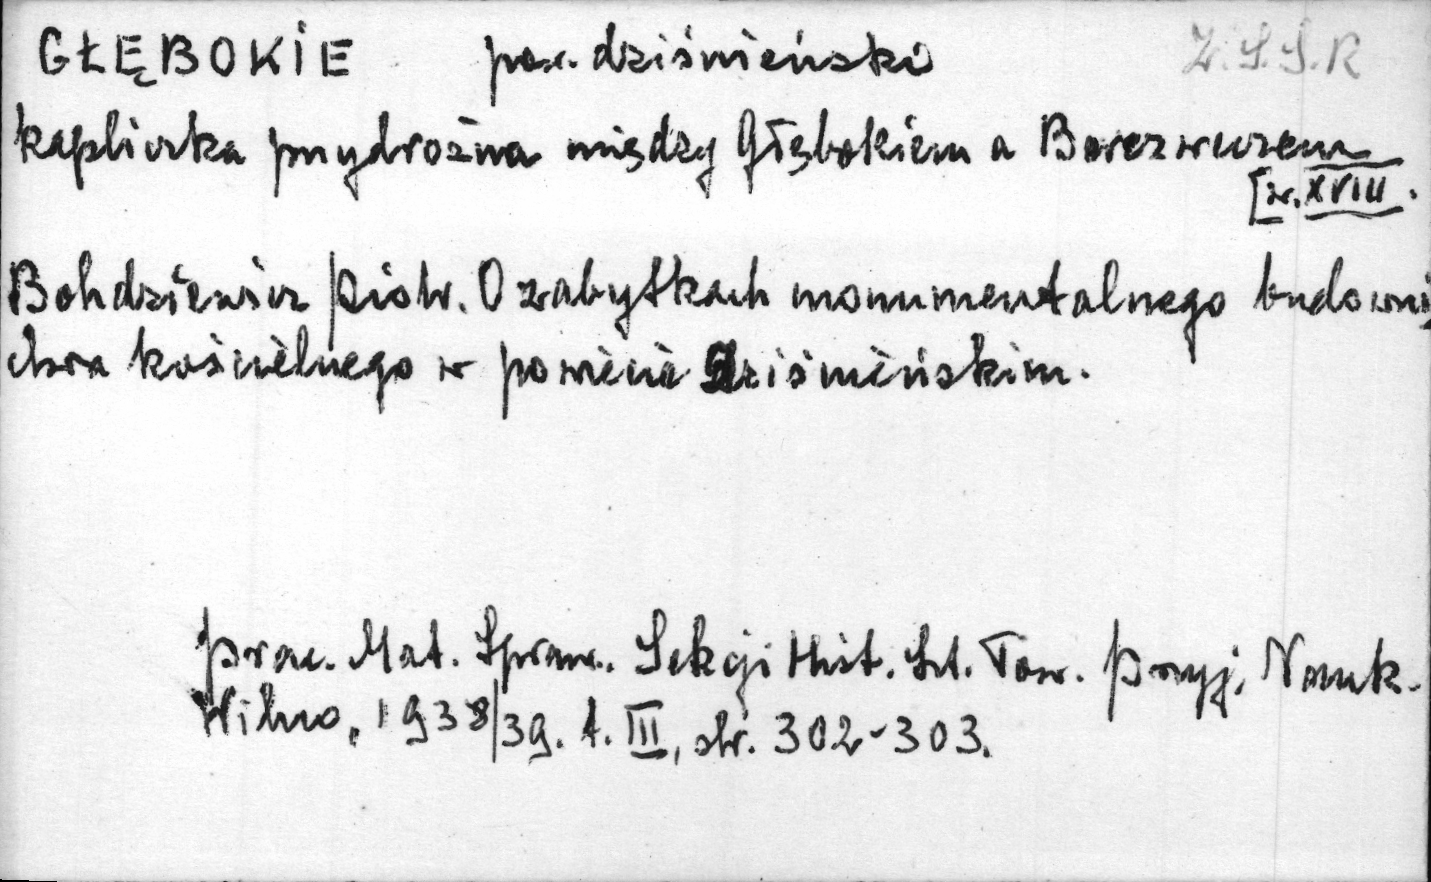 GŁĘBOKIE pow. dziśnieński Z.S.S.R
kapliczka przydrożna między Głębokiem a Berezweczem
[w. XVIII.
Bohdziewicz Piotr. O zabytkach monumentalnego budowni
ctwa kościelnego w powiecie dziśnieńskim.
Prac. Mat. Spraw. Sekcji Hist. Szt. Tow. Przyj. Nauk.
Wilno, 1938/39. t. III, str. 302-303.